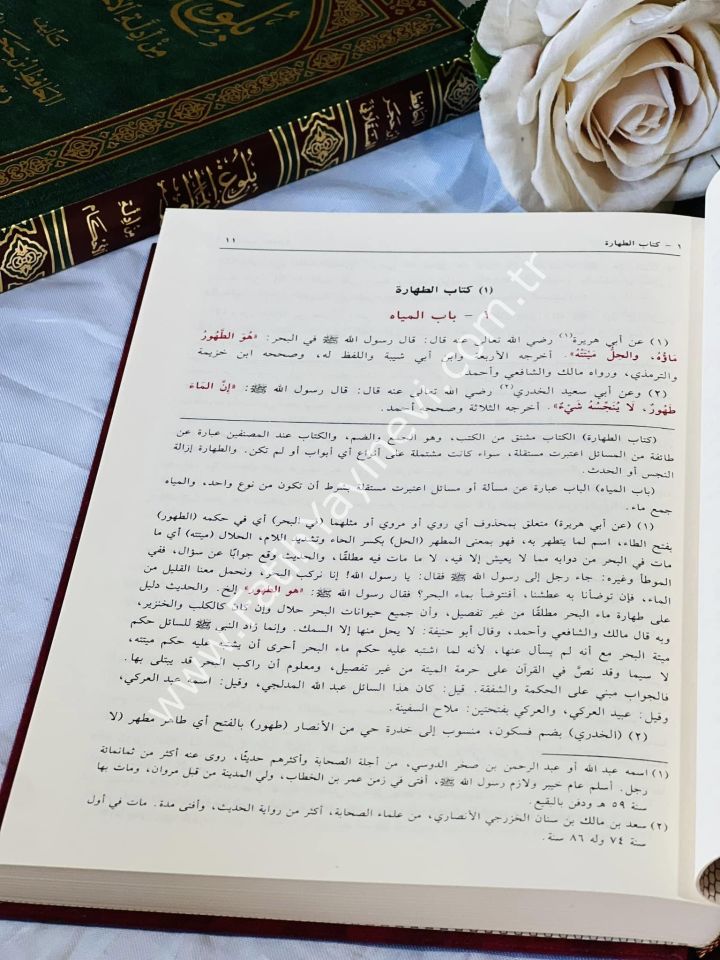 بلوغ
من أدلة
تأليف
الحافظ ابن حجر
الحافظ
ابن حجر
العسقلاني
بلوغ المرام
من أدلة
الأحكام
١ - كتاب الطهارة
١١
(١) كتاب الطهارة
١ - باب المياه
(١) عن أبي هريرة(١) رضي الله تعالى عنه قال: قال رسول الله ﷺ في البحر: «هُوَ الطَّهُورُ
مَاؤُهُ، والحِلُّ مَيْتَتُهُ». أخرجه الأربعة وابن أبي شيبة واللفظ له، وصححه ابن خزيمة
والترمذي، ورواه مالك والشافعي وأحمد.
(٢) وعن أبي سعيد الخدري(٢) رضي الله تعالى عنه قال: قال رسول الله ﷺ: «إِنَّ المَاءَ
طَهُورٌ، لَا يُنَجِّسُهُ شَيْءٌ». أخرجه الثلاثة وصححه أحمد.
(كتاب الطهارة) الكتاب مشتق من الكتب، وهو الجمع والضم، والكتاب عند المصنفين عبارة عن
طائفة من المسائل اعتبرت مستقلة، سواء كانت مشتملة على أنواع أي أبواب أو لم تكن. والطهارة إزالة
النجس أو الحدث.
(باب المياه) الباب عبارة عن مسألة أو مسائل اعتبرت مستقلة بشرط أن تكون من نوع واحد، والمياه
جمع ماء.
(١) (عن أبي هريرة) متعلق بمحذوف أي روي أو مروي أو مثلهما (في البحر) أي في حكمه (الطهور)
بفتح الطاء، اسم لما يتطهر به، فهو بمعنى المطهر (الحل) بكسر الحاء وتشديد اللام، الحلال (ميتته) أي ما
مات في البحر من دوابه مما لا يعيش إلا فيه، لا ما مات فيه مطلقًا، والحديث وقع جوابًا عن سؤال، ففي
الموطأ وغيره: جاء رجل إلى رسول الله ﷺ فقال: يا رسول الله! إنا نركب البحر، ونحمل معنا القليل من
الماء، فإن توضأنا به عطشنا، أفنتوضأ بماء البحر؟ فقال رسول الله ﷺ: «هو الطهور» إلخ. والحديث دليل
على طهارة ماء البحر مطلقًا من غير تفصيل، وأن جميع حيوانات البحر حلال وإن كان كالكلب والخنزير،
وبه قال مالك والشافعي وأحمد، وقال أبو حنيفة: لا يحل منها إلا السمك. وإنما زاد النبي ﷺ للسائل حكم
ميتة البحر مع أنه لم يسأل عنها، لأنه لما اشتبه عليه حكم ماء البحر أحرى أن يشتبه عليه حكم ميتته،
لا سيما وقد نصّ في القرآن على حرمة الميتة من غير تفصيل، ومعلوم أن راكب البحر قد يبتلى بها.
فالجواب مبني على الحكمة والشفقة. قيل: كان هذا السائل عبد الله المدلجي، وقيل: اسمه عبد العركي،
وقيل: عبيد العركي، والعركي بفتحتين: ملاح السفينة.
(٢) (الخدري) بضم فسكون، منسوب إلى خدرة حي من الأنصار (طهور) بالفتح أي طاهر مطهر (لا
(١) اسمه عبد الله أو عبد الرحمن بن صخر الدوسي، من أجلة الصحابة وأكثرهم حديثًا، روى عنه أكثر من ثمانمائة
رجل. أسلم عام خيبر ولازم رسول الله ﷺ، أفتى في زمن عمر بن الخطاب، ولي المدينة من قبل مروان، ومات بها
سنة ٥٩ هـ ودفن بالبقيع.
(٢) سعد بن مالك بن سنان الخزرجي الأنصاري، من علماء الصحابة، أكثر من رواية الحديث، وأفتى مدة. مات في أول
سنة ٧٤ وله ٨٦ سنة.
www.fatihyayinevi.com.tr